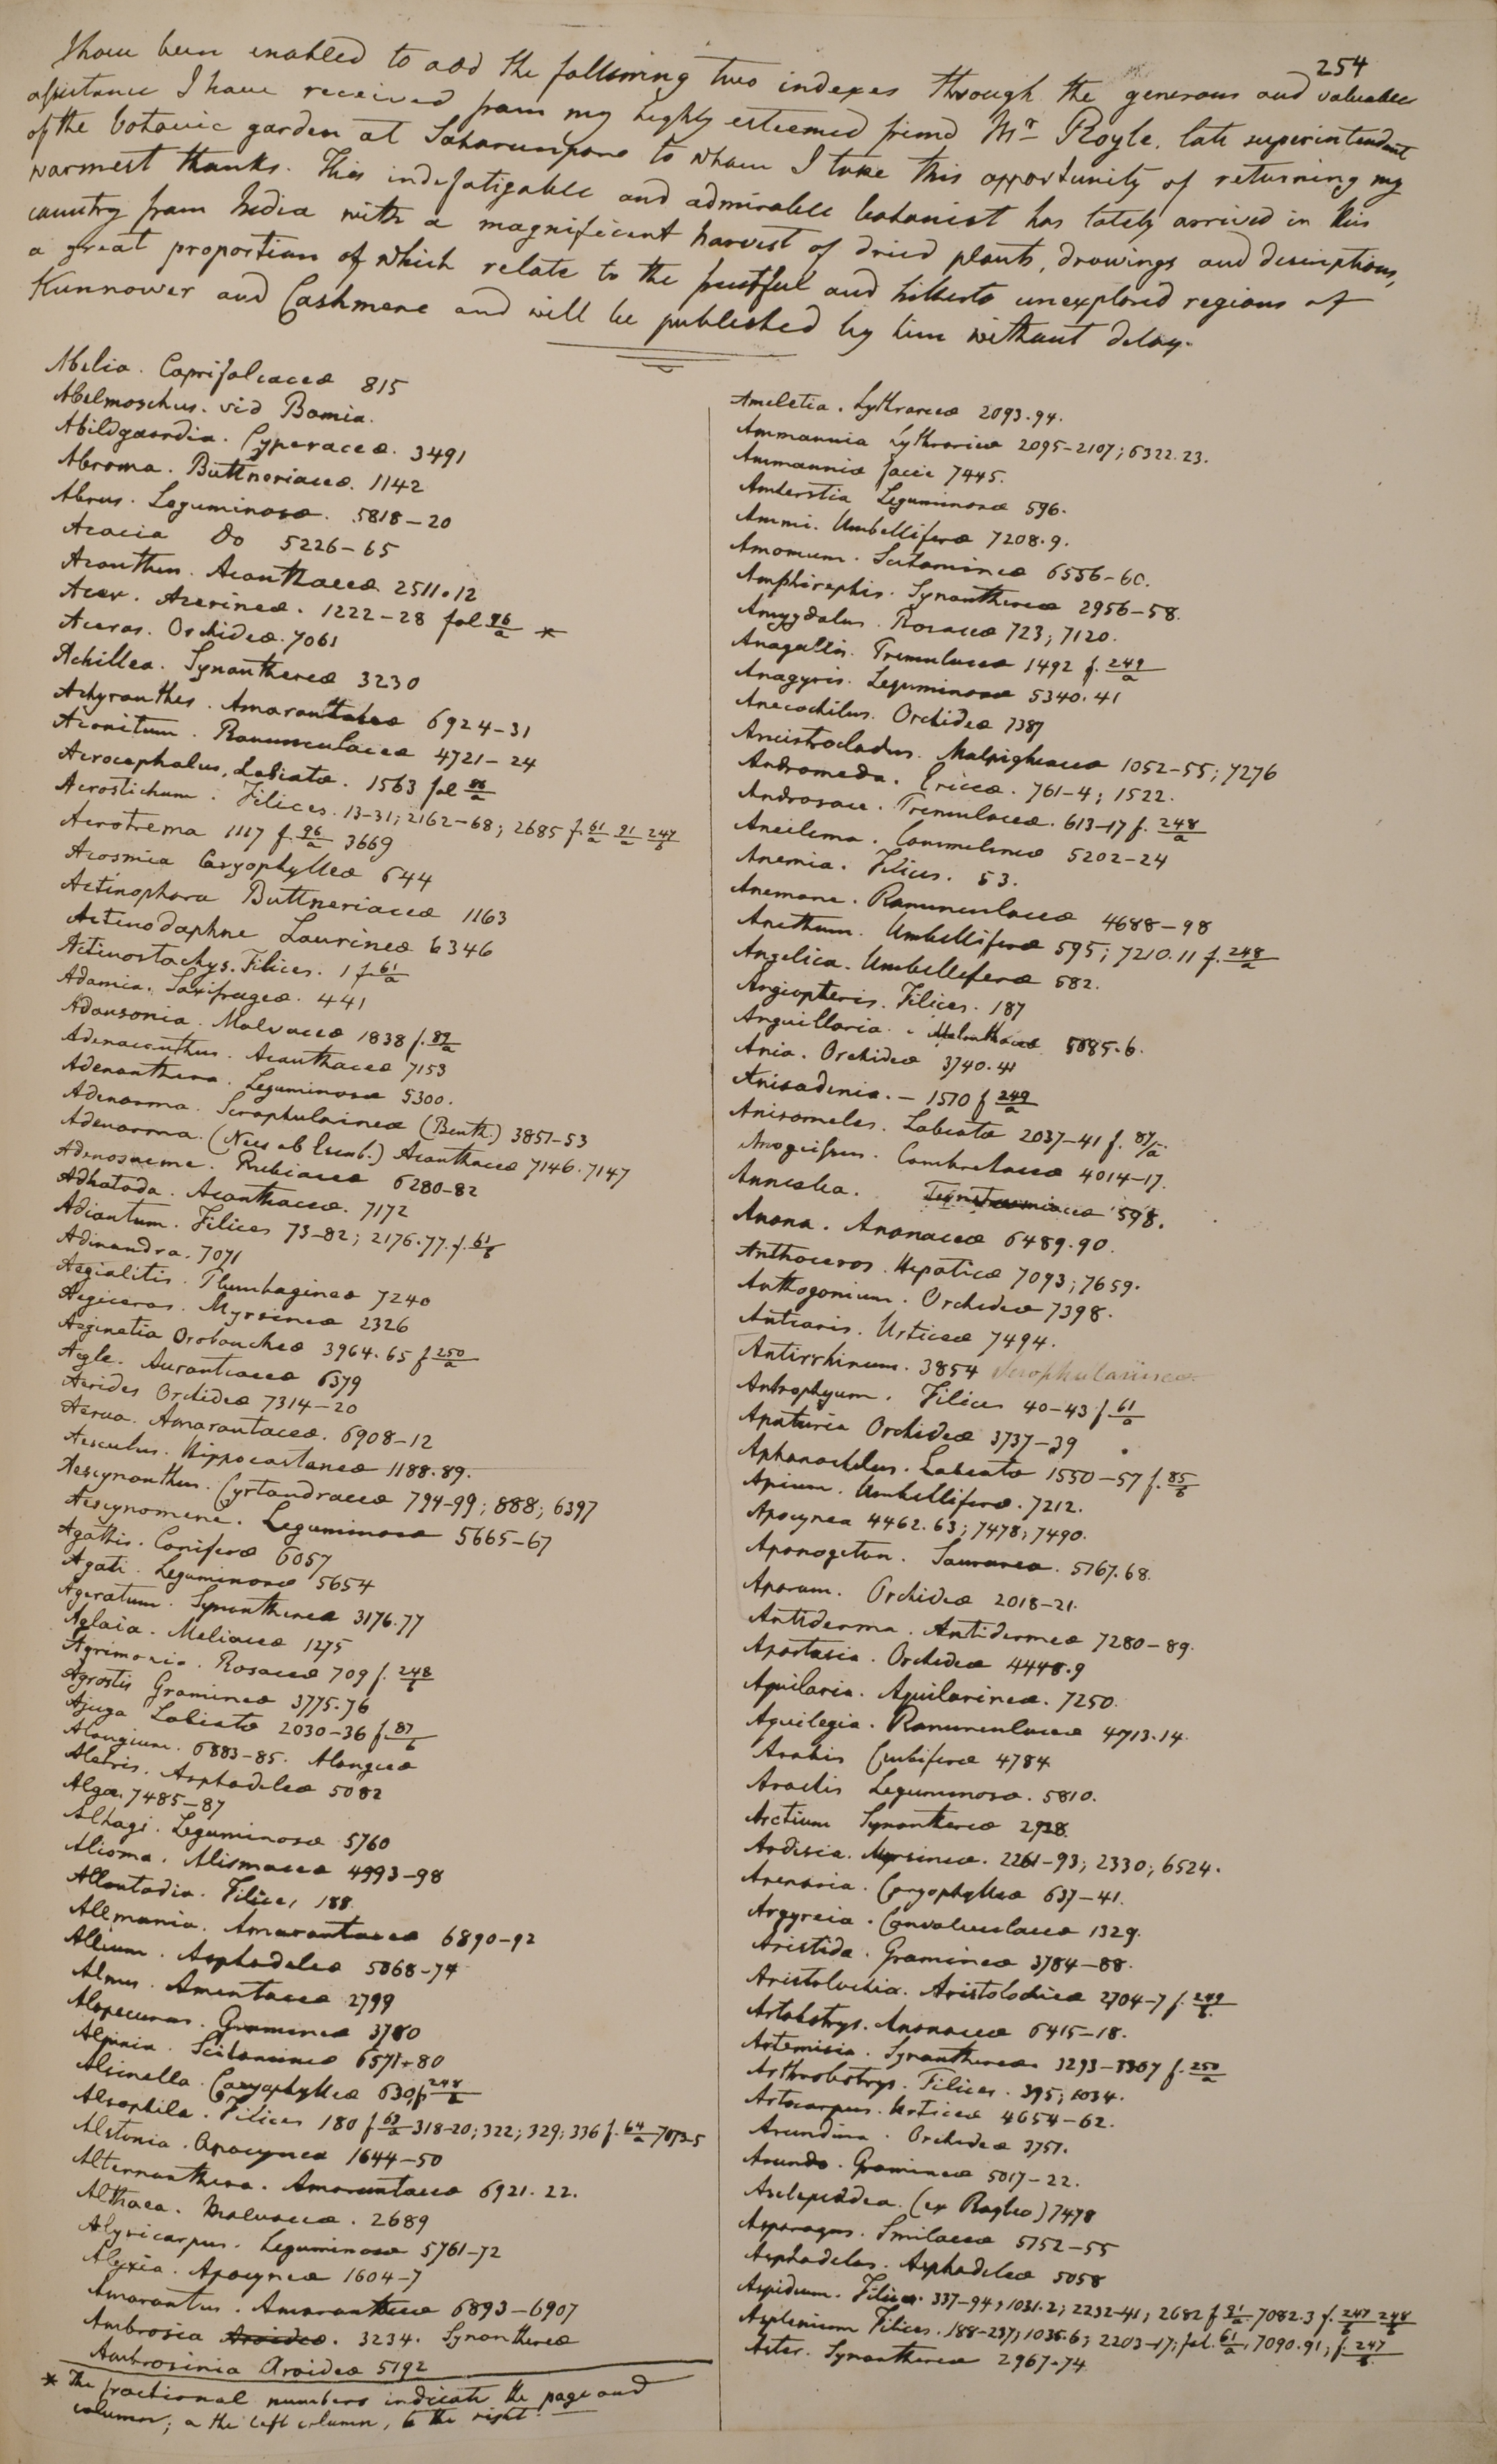 254
I have been enabled to add the following two indexes through the generous and valuable
assistance I have received from my highly esteemed friend Mr Royle, late superintendent
of the botanic garden at Saharunpore to whom I take this opportunity of returning my
warmest thanks. This indefatigable and admirable botanist has lately arrived in this
country from India with a magnificent harvest of dried plants, drawings and descriptions,
a great proportion of which relate to the fruitful and hitherto unexplored regions of
Kunnower and Cashmere and will be published by him without delay.
Abelia. Caprifoliaceæ 815
Abelmoschus. vid Bamia.
Abildgaardia. Cyperaceæ. 3491
Abroma. Buttneriaceæ. 1142
Abrus. Leguminosæ. 5818-20
Acacia Do 5226-65
Acanthus. Acanthaceæ 2511.12
Acer. Acerineæ. 1222-28 fol 96/a *
Aceras. Orchideæ. 7061
Achillea. Synanthereæ 3230
Achyranthes. Amarantaceæ 6924-31
Aconitum. Ranunculaceæ 4721-24
Acrocephalus. Labiatæ. 1563 fol 86/a
Acrostichum. Filices. 13-31; 2162-68; 2685 f. 61/a 91/a 247/b
Acrotrema 1117 f. 96/a 3669
Acosmia Caryophylleæ 644
Actinophora Buttneriaceæ 1163
Actinodaphne Laurineæ 6346
Actinostachys. Filices. 1 f. 61/a
Adamia. Saxifrageæ. 441
Adansonia. Malvaceæ 1838 f. 89/a
Adenacanthus. Acanthaceæ 7153
Adenanthera. Leguminosæ 5300.
Adenosma. Scrophularineæ (Benth.) 3851-53
Adenosma. (Nees ab Esenb.) Acanthaceæ 7146.7147
Adenosacme. Rubiaceæ 6280-82
Adhatoda. Acanthaceæ. 7172
Adiantum. Filices 73-82; 2176.77. f. 61/b
Adinandra. 7071
Aegialitis. Plumbagineæ 7240
Aegiceras. Myrsineæ 2326
Aeginetia Orobancheæ 3964.65 f 250/a
Aegle. Aurantiaceæ 6379
Aerides Orchideæ 7314-20
Aerua. Amarantaceæ. 6908-12
Aesculus. Hippocastaneæ 1188.89.
Aescynanthus. Cyrtandraceæ 794-99; 888; 6397
Aescynomene. Leguminosæ 5665-67
Agathis. Coniferæ 6057
Agati. Leguminosæ 5654
Ageratum. Synanthereæ 3176.77
Aglaia. Meliaceæ 1275
Agrimonia. Rosaceæ 709 f. 248/b
Agrostis Gramineæ 3775.76
Ajuga Labiatæ 2030-36 f. 87/b
Alangium. 6883-85. Alangieæ
Aletris. Asphodeleæ 5082
Algæ. 7485-87
Alhagi. Leguminosæ 5760
Alisma. Alismaceæ 4993-98
Allantodia. Filices 188.
Allmania. Amarantaceæ 6890-92
Allium. Asphodeleæ 5068-74
Alnus. Amentaceæ 2799
Alopecurus. Gramineæ 3780
Alpinia. Scitamineæ 6571-80
Alsinella. Caryophylleæ 630 f. 248/b
Alsophila. Filices 180 f 63/a 318-20; 322; 329; 336 f. 64/a 7073-5
Alstonia. Apocyneæ 1644-50
Alternanthera. Amarantaceæ 6921.22.
Althæa. Malvaceæ. 2689
Alysicarpus. Leguminosæ 5761-72
Alyxia. Apocyneæ 1604-7
Amarantus. Amarantaceæ 6893-6907
Ambrosia Aroideæ. 3234. Synanthereæ
Ambrosinia Aroideæ 5192
* The fractional numbers indicate the page and
column; a the left column, b the right.
Ameletia. Lythrarieæ 2093.94.
Ammannia Lythrarieæ 2095-2107; 6322.23.
Ammanniæ facie 7445.
Amherstia Leguminosæ 596.
Ammi. Umbelliferæ 7208.9.
Amomum. Scitamineæ 6556-60.
Amphiraphis. Synanthereæ 2956-58.
Amygdalus. Rosaceæ 723; 7120.
Anagallis. Primulaceæ 1492 f. 249/a
Anagyris. Leguminosæ 5340.41
Anecochilus. Orchideæ 7387
Ancistrocladus. Malpighiaceæ 1052-55; 7276
Andromeda. Ericeæ. 761-4; 1522.
Androsace. Primulaceæ. 613-17 f. 248/a
Aneilema. Commelineæ 5202-24
Anemia. Filices. 53.
Anemone. Ranunculaceæ 4688-98
Anethum. Umbelliferæ 595; 7210.11 f. 248/a
Angelica. Umbelliferæ 582.
Angiopteris. Filices. 187
Anguillaria. Melanthaceæ 5085.6.
Ania. Orchideæ 3740.41
Anisadenia. - 1510 f 249/a
Anisomeles. Labiatæ 2037-41 f. 87/a
Anogeissus. Combretaceæ 4014-17.
Anneslea. Ternstroemiaceæ 598.
Anona. Anonaceæ 6489.90.
Anthoceros. Hepaticæ 7093; 7659.
Anthogonium. Orchideæ 7398.
Antiaris. Urticeæ 7494.
Antirrhinum. 3854 Scrophularineæ
Antrophyum. Filices 40-43 f 61/a
Apaturia Orchideæ 3737-39
Aphanochilus. Labiatæ 1550-57 f. 85/b
Apium. Umbelliferæ. 7212.
Apocyneæ 4462.63; 7478; 7490.
Aponogeton. Saurureæ. 5767.68.
Aporum. Orchideæ 2018-21.
Antiderma. Antidermeæ 7280-89.
Apostasia. Orchideæ 4448.9
Aquilaria. Aquilarineæ. 7250.
Aquilegia. Ranunculaceæ 4713.14.
Arabis Cruciferæ 4784
Arachis Leguminosæ. 5810.
Arctium Synanthereæ 2928.
Ardisia. Myrsineæ. 2261-93; 2330; 6524.
Arenaria. Caryophylleæ 637-41.
Argyreia. Convolvulaceæ 1329.
Aristida. Gramineæ 3784-88.
Aristolochia. Aristolochieæ 2704-7 f. 249/b
Artabotrys. Anonaceæ 6415-18.
Artemisia. Synanthereæ 3293-3307 f. 250/a
Arthrobotrys. Filices. 395; 1034.
Artocarpus. Urticeæ 4654-62.
Arundina. Orchideæ 3751.
Arundo. Gramineæ 5017-22.
Asclepiadea. (ex Royleo) 7478
Asparagus. Smilaceæ 5152-55
Asphodelus. Asphodeleæ 5058
Aspidium. Filices. 337-94; 1031.2; 2232-41; 2682 f 91/a 7082.3 f. 247/b 248/b
Asplenium Filices. 188-237; 1035.6; 2203-17; fol. 61/a; 7090.91; f. 247/b
Aster. Synanthereæ 2967-74